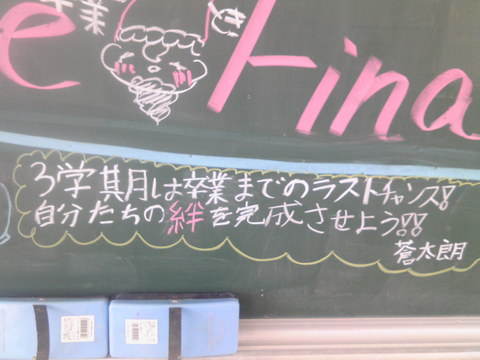 業
e Fina
3学期は卒業までのラストチャンス!
自分たちの絆を完成させよう!!
蒼太朗